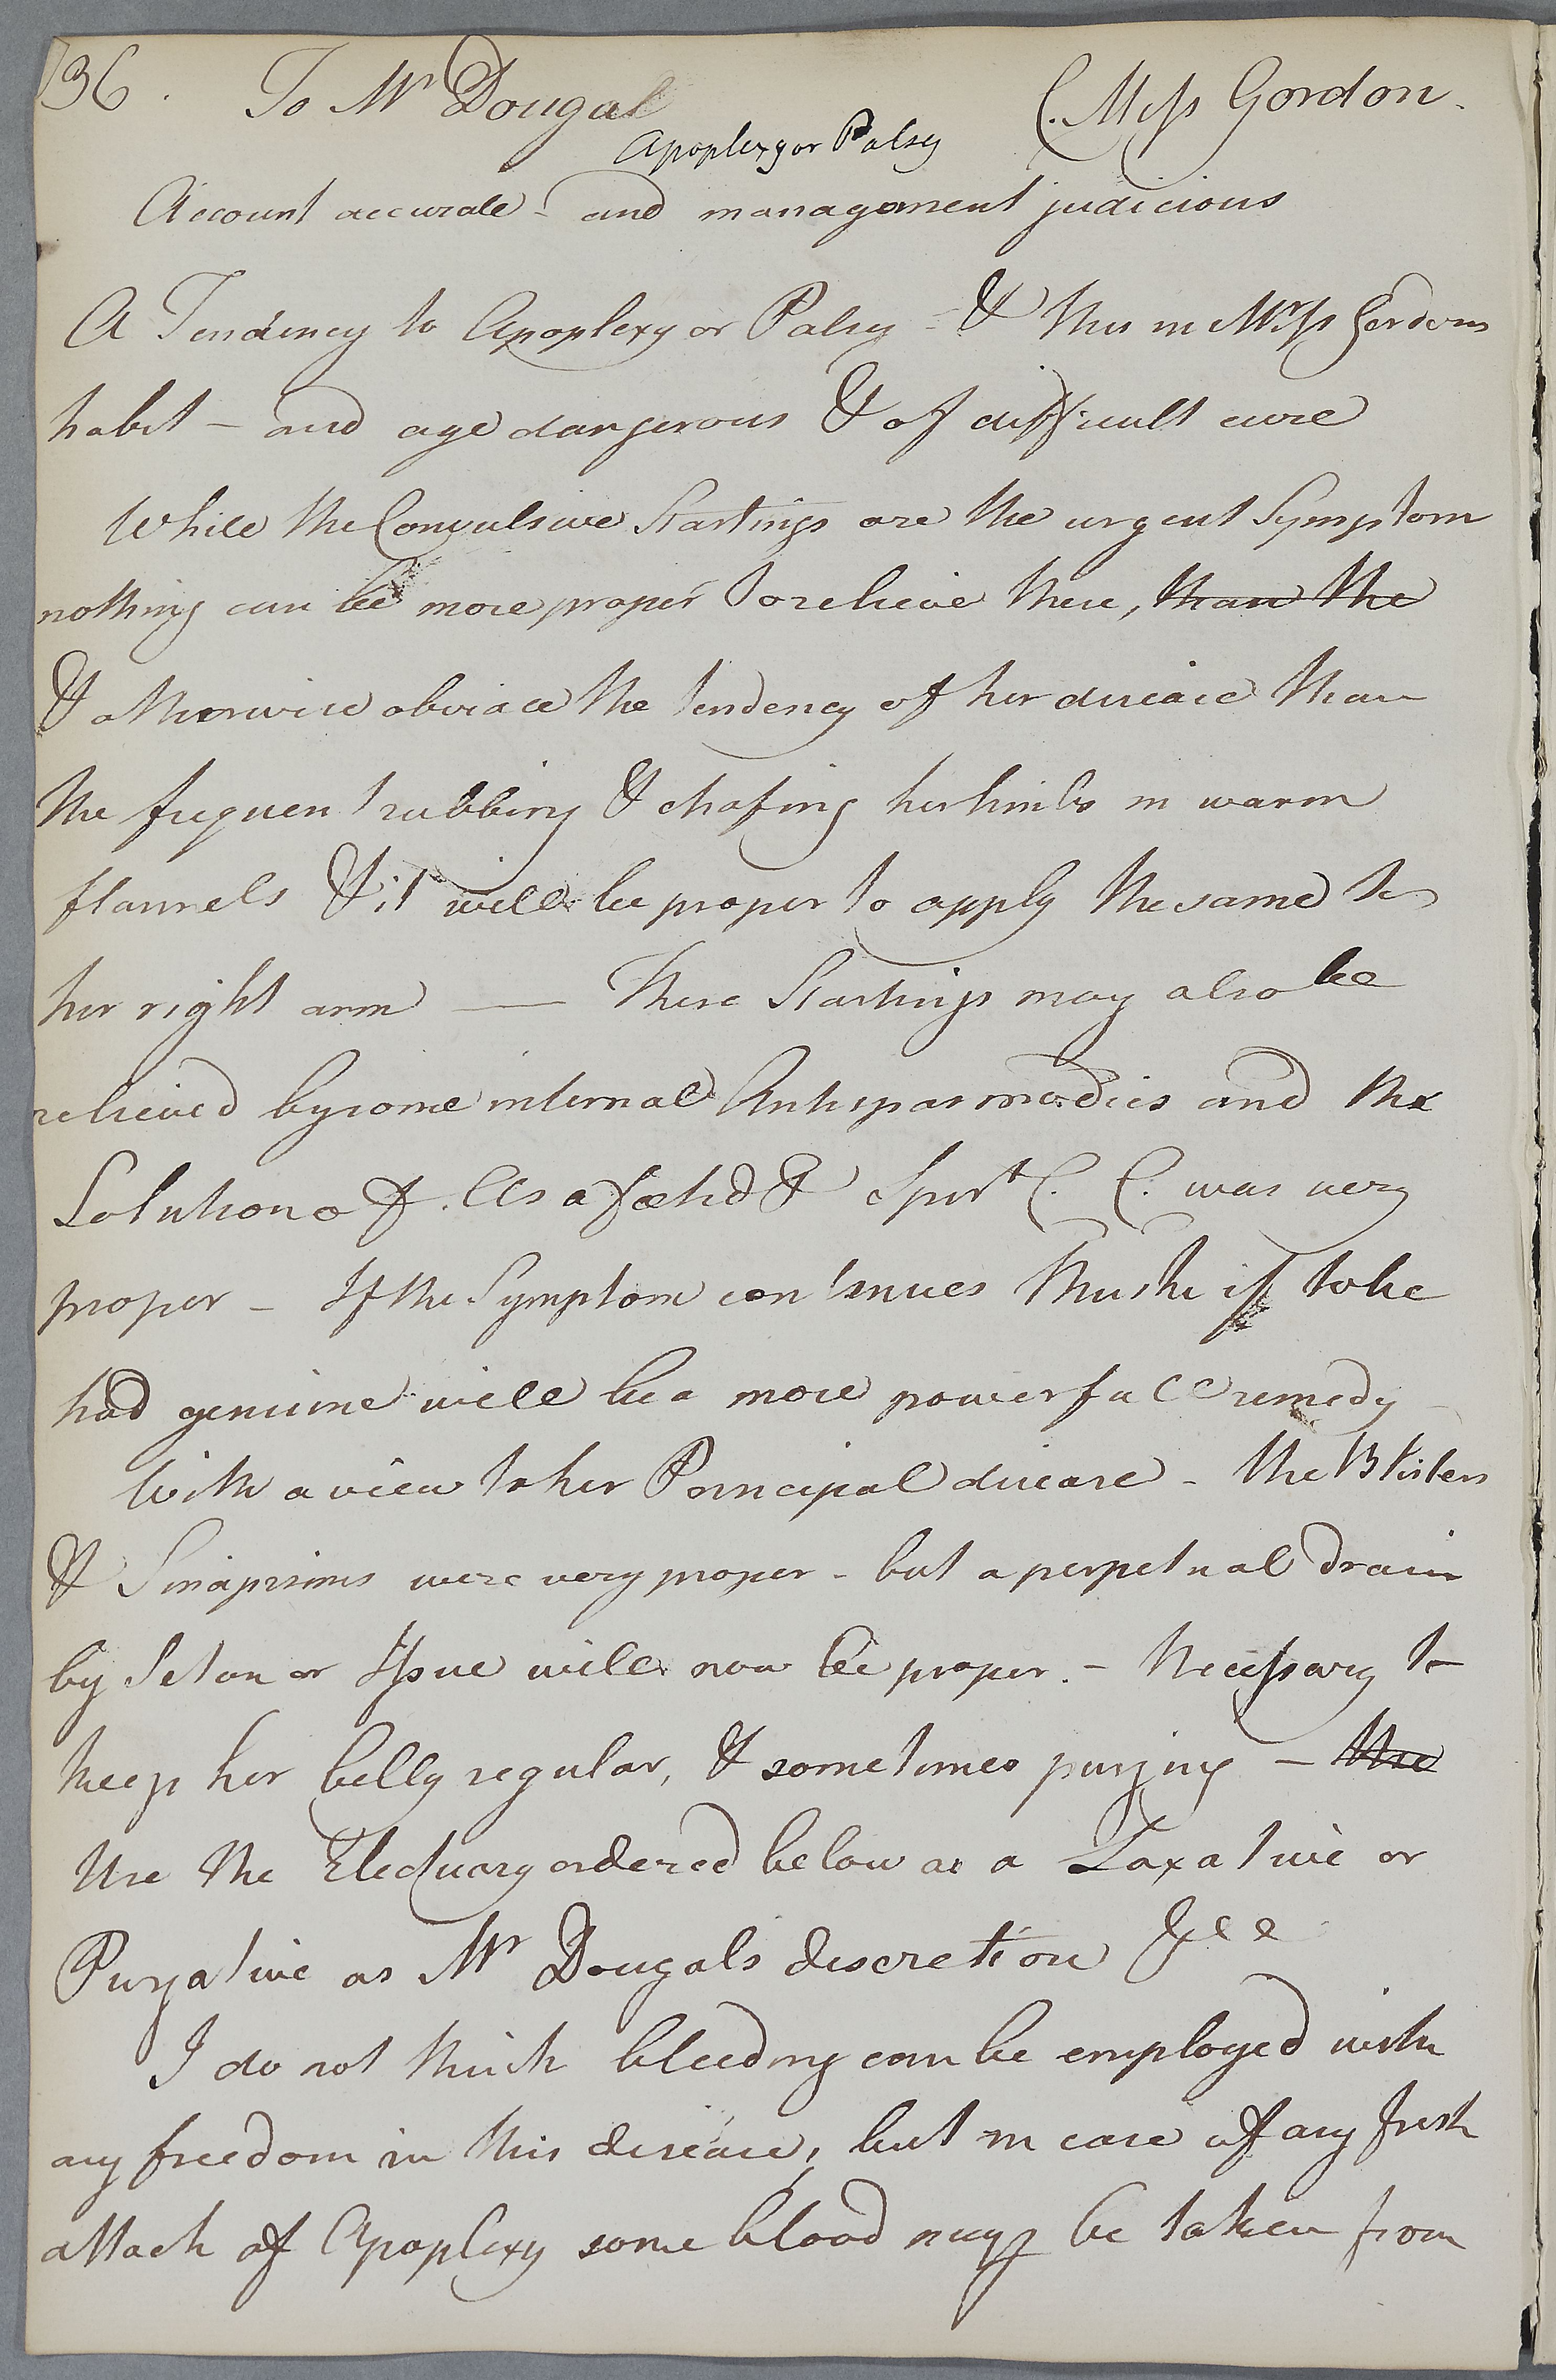 136. To Mr Dougal (. Miss Gordon.
Apoplexy or Palsy
Account accurate - and management judicious
A Tendency to Apoplexy or Palsy - & this in Miss Gordons
habit - and age dangerous & of difficult cure
While the Convulsive Startings are the urgent Symptom
nothing can be more proper to relieve these, than the
& otherwise obviate the tendency of her disease than
the frequent rubbing & chafing her limbs in warm
flannels & it will be proper to apply the same to
her right arm — These Startings may also be
relieved by some internal Antispasmodics and the
Solution of Asafœtid & Spirt C. C. was very
proper - If the Symptom continues Musk if to be
had genuine will be a more powerfull remedy -
With a view to her Principal disease - the Blisters
& Sinapisms were very proper - but a perpetual drain
by Seton or Issue will now be proper. - Necessary to
keep her belly regular, & sometimes purging - the
Use the Electuary ordered below as a Laxative or
Purgative as Mr Dougals discretion
I do not think bleeding can be employed with
any freedom in this disease, but in case of any fresh
attack of Apoplexy some blood may be taken from